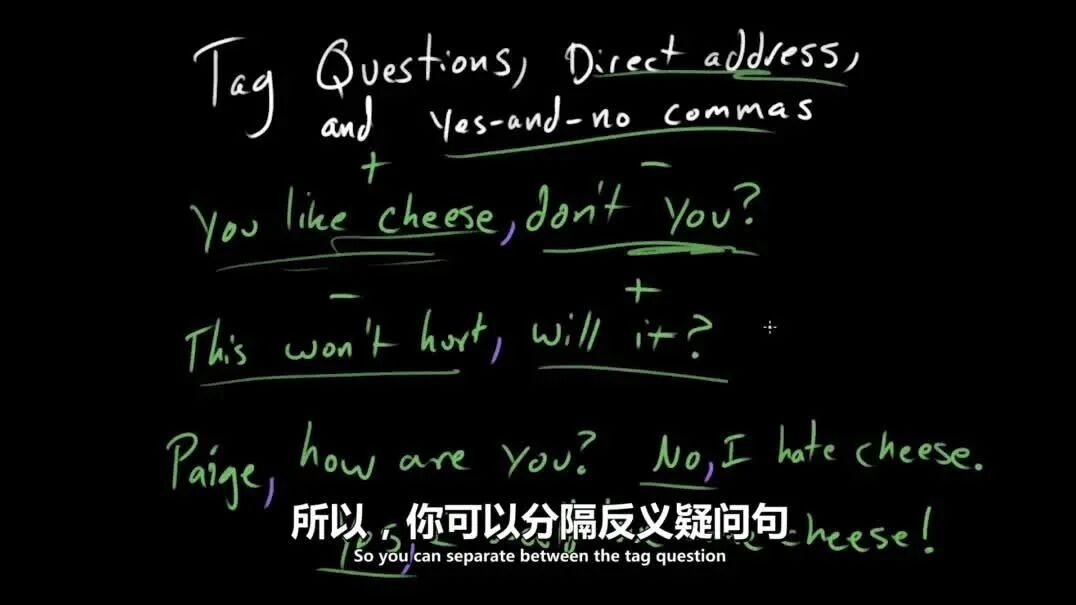 Tag Questions, Direct address,
and Yes-and-no commas
+ −
You like cheese, don't you?
− +
This won't hurt, will it?
Paige, how are you? No, I hate cheese.
所以，你可以分隔反义疑问句
Yes, cheese!
So you can separate between the tag question